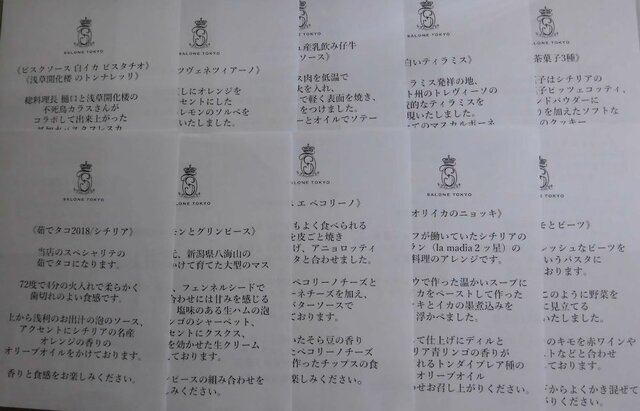 SALONE TOKYO
《ビスクソース 白イカ ピスタチオ》
《浅草開化楼 のトンナレッリ》
総料理長 樋口と浅草開化楼の
不死鳥カラスさんが
コラボして出来上がった
SALONE TOKYO
ツヴェネツィアーノ》
しにオレンジを
セントにした
レモンのソルベを
いたしました。
産乳飲み仔牛
ソース》
ス肉を低温で
火を入れ、
で軽く表面を焼き、
をつけました。
ーとオイルでソテー
SALONE TOKYO
白いティラミス》
ラミス発祥の地、
ト州のトレヴィーソの
的なティラミスを
現いたしました。
てのマスカルポーネ
SALONE TOKYO
茶菓子3種》
子はシチリアの
子ピッツェコッティ、
ンドパウダーに
りを加えたソフトな
のクッキー
SALONE TOKYO
《茹でタコ2018/シチリア》
当店のスペシャリテの
茹でタコになります。
72度で4分の火入れで柔らかく
歯切れのよい食感です。
上から浅利のお出汁の泡のソース、
アクセントにシチリアの名産
オレンジの香りの
オリーブオイルをかけております。
香りと食感をお楽しみください。
SALONE TOKYO
モンとグリンピース》
元、新潟県八海山の
かけて育てた大型のマス
、フェンネルシードで
合わせには甘みを感じる
塩味のある生ハムの泡
ゴのシャーベット、
セントにクスクス、
を効かせた生クリーム
ております。
ピースの組み合わせを
しみください。
SALONE TOKYO
エ ペコリーノ》
もよく食べられる
を皮ごと焼き
げ、アニョロッティ
タと合わせました。
ペコリーノチーズと
ーネチーズを加え、
バターソースで
ております。
たそら豆の香り
たペコリーノチーズ
作ったチップスの食
しみください。
SALONE TOKYO
オリイカのニョッキ》
フが働いていたシチリアの
ラン(la madia 2ッ星)の
料理のアレンジです。
ウで作った温かいスープに
カをペーストして作った
キとイカの墨煮込みを
浮かべました。
して仕上げにディルと
リア青リンゴの香りが
れるトンダイブレア種の
オリーブオイル
わせお召し上がりください。
SALONE TOKYO
モとビーツ》
レッシュなビーツを
いうパスタに
おります。
このように野菜を
に見立てる
いたしました。
のキモを赤ワインや
ストなどと合わせ
ております。
からよくかき混ぜて
がりください。